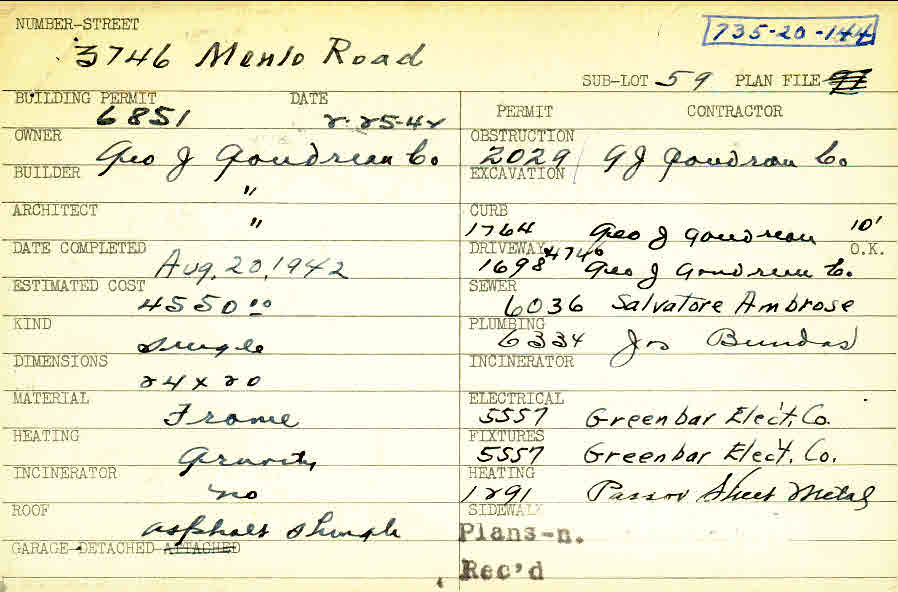 NUMBER-STREET
3746 Menlo Road
735-20-144
SUB-LOT 59 PLAN FILE
BUILDING PERMIT DATE
6851 2-25-42
PERMIT CONTRACTOR
OWNER Geo J Goudreau Co.
OBSTRUCTION
2029 G J Goudreau Co
BUILDER "
EXCAVATION
ARCHITECT "
CURB
1764 Geo J Goudreau 10'
DATE COMPLETED
Aug. 20, 1942
DRIVEWAY O.K.
1698 + 4740 Geo J Goudreau Co.
ESTIMATED COST
4550 00
SEWER
6036 Salvatore Ambrose
KIND
Single
PLUMBING
6334 Jos Bundas
DIMENSIONS
24 x 20
INCINERATOR
MATERIAL
Frame
ELECTRICAL
5557 Greenbar Elect. Co.
HEATING
Gravity
FIXTURES
5557 Greenbar Elect. Co.
INCINERATOR
no
HEATING
1291 Sheet Metal
ROOF
asphalt shingle
SIDEWALK
Plans-n.
GARAGE-DETACHED ATTACHED
Rec'd